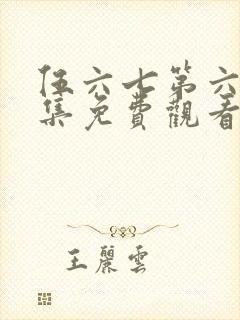 伍六七第六
集免費觀看
王麗雲